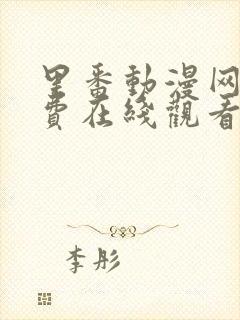 里番動漫网
費在綫觀看
李彤